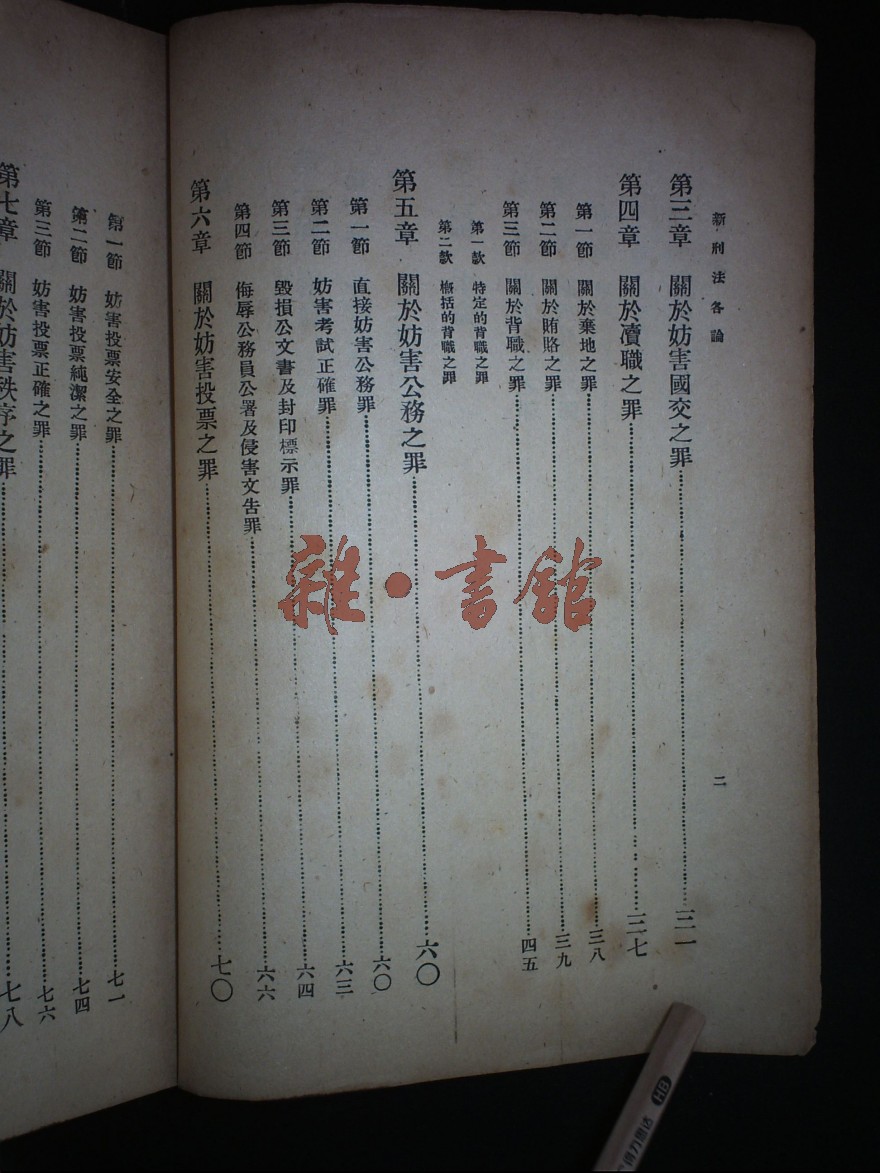 新刑法各論
二
第三章 關於妨害國交之罪 三一
第四章 關於瀆職之罪 三七
第一節 關於棄地之罪 三八
第二節 關於賄賂之罪 三九
第三節 關於背職之罪 四五
第一款 特定的背職之罪
第二款 概括的背職之罪
第五章 關於妨害公務之罪 六〇
第一節 直接妨害公務罪 六〇
第二節 妨害考試正確罪 六三
第三節 毀損公文書及封印標示罪 六四
第四節 侮辱公務員公署及侵害文告罪 六六
第六章 關於妨害投票之罪 七〇
第一節 妨害投票安全之罪 七一
第二節 妨害投票純潔之罪 七四
第三節 妨害投票正確之罪 七六
第七章 關於妨害秩序之罪 七八
雜·書館
HB